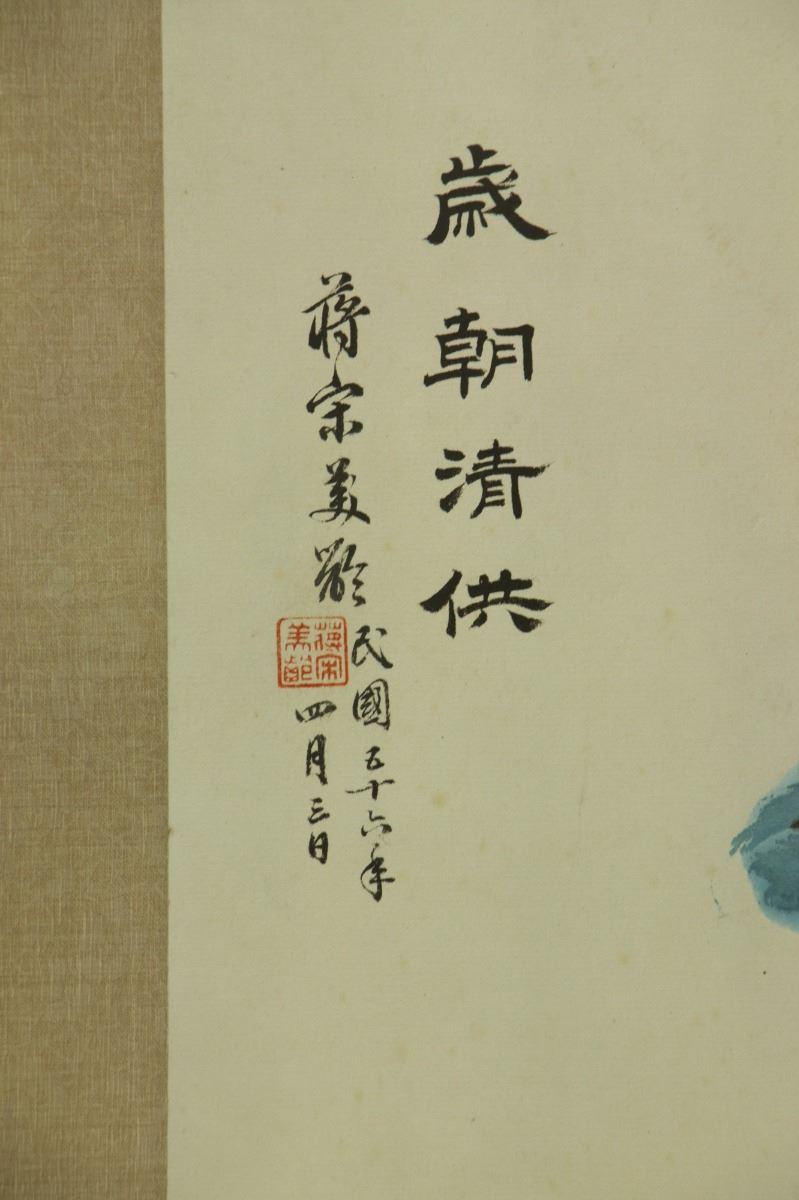 歳朝清供
蔣宋美齡
民國五十六年
四月三日
蔣宋美齡